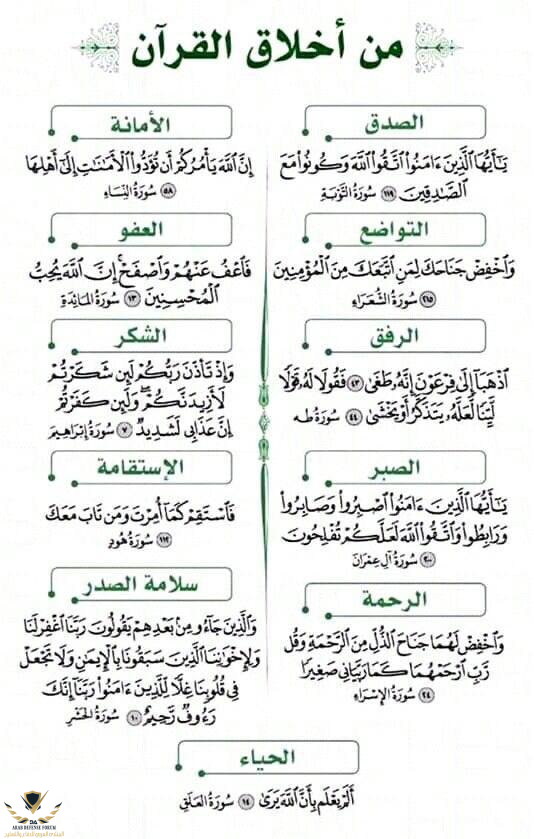 من أخلاق القرآن
الصدق
يَٰٓأَيُّهَا ٱلَّذِينَ ءَامَنُوا۟ ٱتَّقُوا۟ ٱللَّهَ وَكُونُوا۟ مَعَ
ٱلصَّٰدِقِينَ ١١٩ سُورَةُ التَّوْبَةِ
التواضع
وَٱخْفِضْ جَنَاحَكَ لِمَنِ ٱتَّبَعَكَ مِنَ ٱلْمُؤْمِنِينَ
٢١٥ سُورَةُ الشُّعَرَاءِ
الرفق
ٱذْهَبَآ إِلَىٰ فِرْعَوْنَ إِنَّهُۥ طَغَىٰ ٤٣ فَقُولَا لَهُۥ قَوْلًا
لَّيِّنًا لَّعَلَّهُۥ يَتَذَكَّرُ أَوْ يَخْشَىٰ ٤٤ سُورَةُ طه
الصبر
يَٰٓأَيُّهَا ٱلَّذِينَ ءَامَنُوا۟ ٱصْبِرُوا۟ وَصَابِرُوا۟
وَرَابِطُوا۟ وَٱتَّقُوا۟ ٱللَّهَ لَعَلَّكُمْ تُفْلِحُونَ
٢٠٠ سُورَةُ آلِ عِمْرَانَ
الرحمة
وَٱخْفِضْ لَهُمَا جَنَاحَ ٱلذُّلِّ مِنَ ٱلرَّحْمَةِ وَقُل
رَّبِّ ٱرْحَمْهُمَا كَمَا رَبَّيَانِى صَغِيرًا
٢٤ سُورَةُ الإِسْرَاءِ
الأمانة
إِنَّ ٱللَّهَ يَأْمُرُكُمْ أَن تُؤَدُّوا۟ ٱلْأَمَٰنَٰتِ إِلَىٰٓ أَهْلِهَا
٥٨ سُورَةُ النِّسَاءِ
العفو
فَٱعْفُ عَنْهُمْ وَٱصْفَحْ إِنَّ ٱللَّهَ يُحِبُّ
ٱلْمُحْسِنِينَ ١٣ سُورَةُ المَائِدَةِ
الشكر
وَإِذْ تَأَذَّنَ رَبُّكُمْ لَئِن شَكَرْتُمْ
لَأَزِيدَنَّكُمْ وَلَئِن كَفَرْتُمْ
إِنَّ عَذَابِى لَشَدِيدٌ ٧ سُورَةُ إِبْرَاهِيمَ
الإستقامة
فَٱسْتَقِمْ كَمَآ أُمِرْتَ وَمَن تَابَ مَعَكَ
١١٢ سُورَةُ هُودٍ
سلامة الصدر
وَٱلَّذِينَ جَآءُو مِنۢ بَعْدِهِمْ يَقُولُونَ رَبَّنَا ٱغْفِرْ لَنَا
وَلِإِخْوَٰنِنَا ٱلَّذِينَ سَبَقُونَا بِٱلْإِيمَٰنِ وَلَا تَجْعَلْ
فِى قُلُوبِنَا غِلًّا لِّلَّذِينَ ءَامَنُوا۟ رَبَّنَآ إِنَّكَ
رَءُوفٌ رَّحِيمٌ ١٠ سُورَةُ الحَشْرِ
الحياء
أَلَمْ يَعْلَم بِأَنَّ ٱللَّهَ يَرَىٰ ١٤ سُورَةُ العَلَقِ
ARAB DEFENSE FORUM